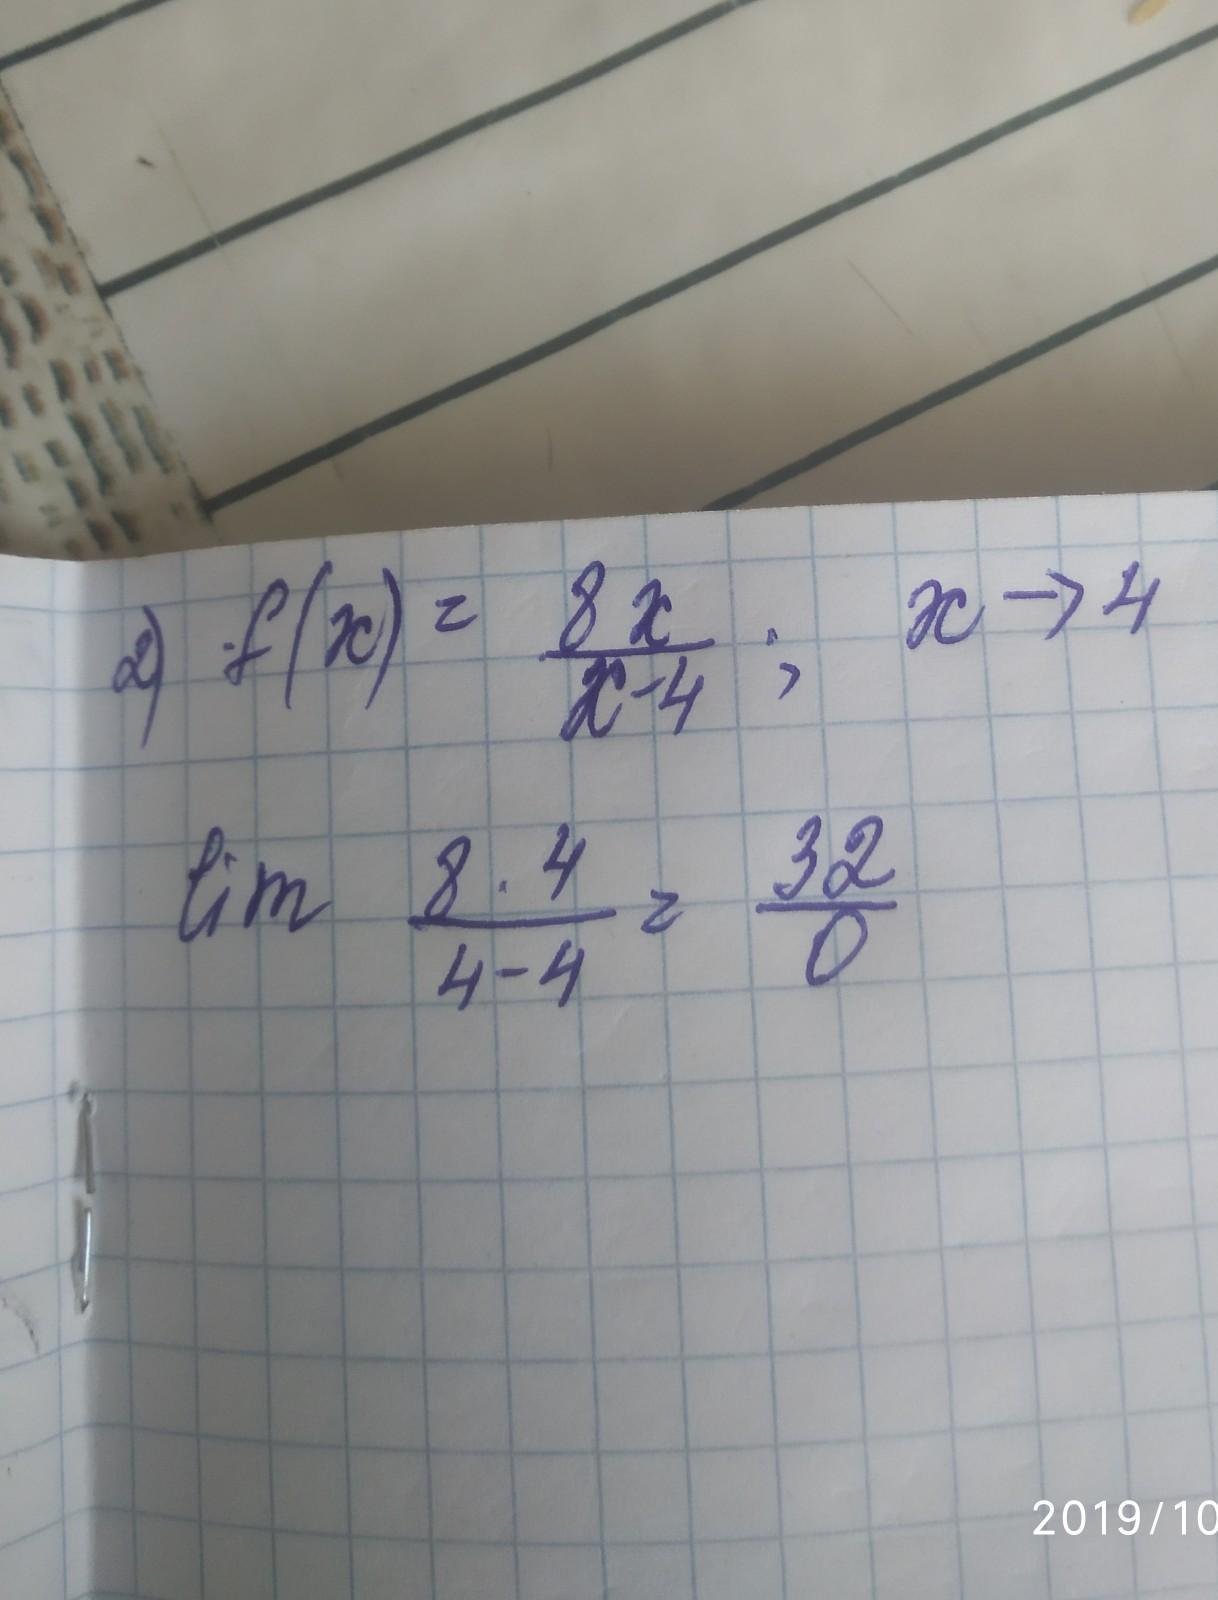 2) f(x) = 8x / x-4 ; x → 4
lim 8 · 4 / 4-4 = 32 / 0
2019/10